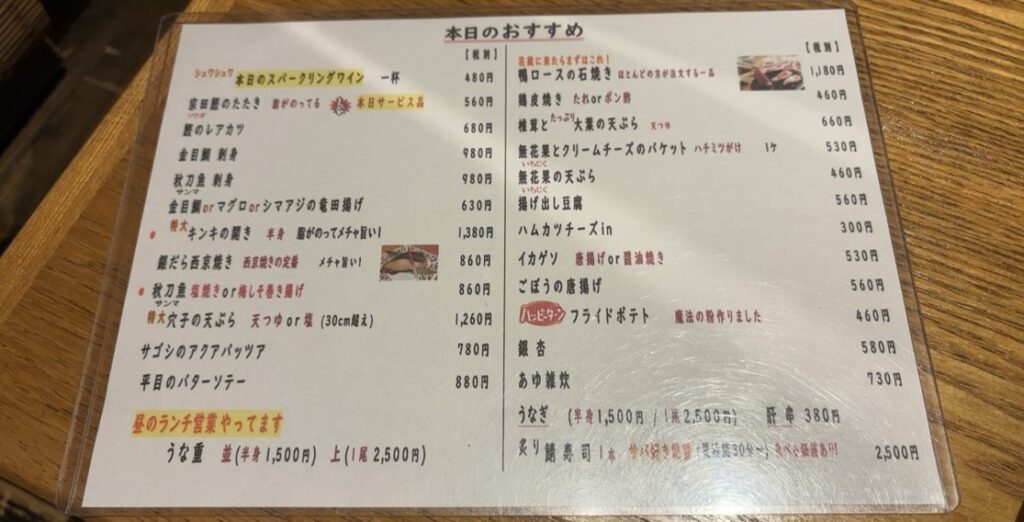 本日のおすすめ
【税別】
シュワシュワ 本日のスパークリングワイン 一杯 480円
宗田鰹のたたき 脂がのってる 本日サービス品 560円
ソウダ
鰹のレアカツ 680円
金目鯛 刺身 980円
秋刀魚 刺身 980円
サンマ
金目鯛orマグロorシマアジの竜田揚げ 630円
特大 キンキの開き 半身 脂がのってメチャ旨い! 1,380円
銀だら西京焼き 西京焼きの定番 メチャ旨い! 860円
秋刀魚 塩焼きor梅しそ巻き揚げ 860円
サンマ
特大 穴子の天ぷら 天つゆor塩 (30cm超え) 1,260円
サゴシのアクアパッツア 780円
平目のバターソテー 880円
昼のランチ営業やってます
うな重 並(半身1,500円) 上(1尾2,500円)
【税別】
に来たらまずはこれ!
鴨ロースの石焼き ほとんどの方が注文する一品 1,180円
鶏皮焼き たれorポン酢 460円
椎茸とたっぷり大葉の天ぷら 天つゆ 660円
無花果とクリームチーズのバケット ハチミツがけ 1ケ 530円
いちじく
無花果の天ぷら 460円
いちじく
揚げ出し豆腐 560円
ハムカツチーズin 300円
イカゲソ 唐揚げor醤油焼き 530円
ごぼうの唐揚げ 560円
ハッピーターン フライドポテト 魔法の粉作りました 460円
銀杏 580円
あゆ雑炊 730円
うなぎ (半身1,500円 / 1尾2,500円) 肝串 380円
炙り鯖寿司 1本 サバ好き 30分〜) 食べる価値あり!! 2,500円